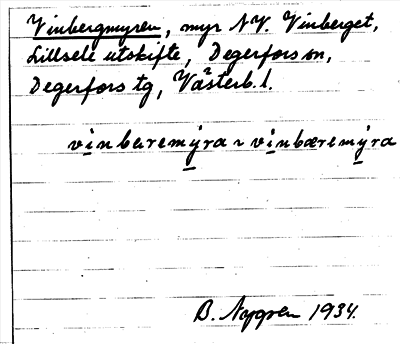 Vinbergmyren, myr NV. Vinberget,
Lillsele utskifte, Degerfors sn,
Degerfors tg, Västerb. l.
vinbaremyra ~ vinbæremyra
B. Nygren 1934.